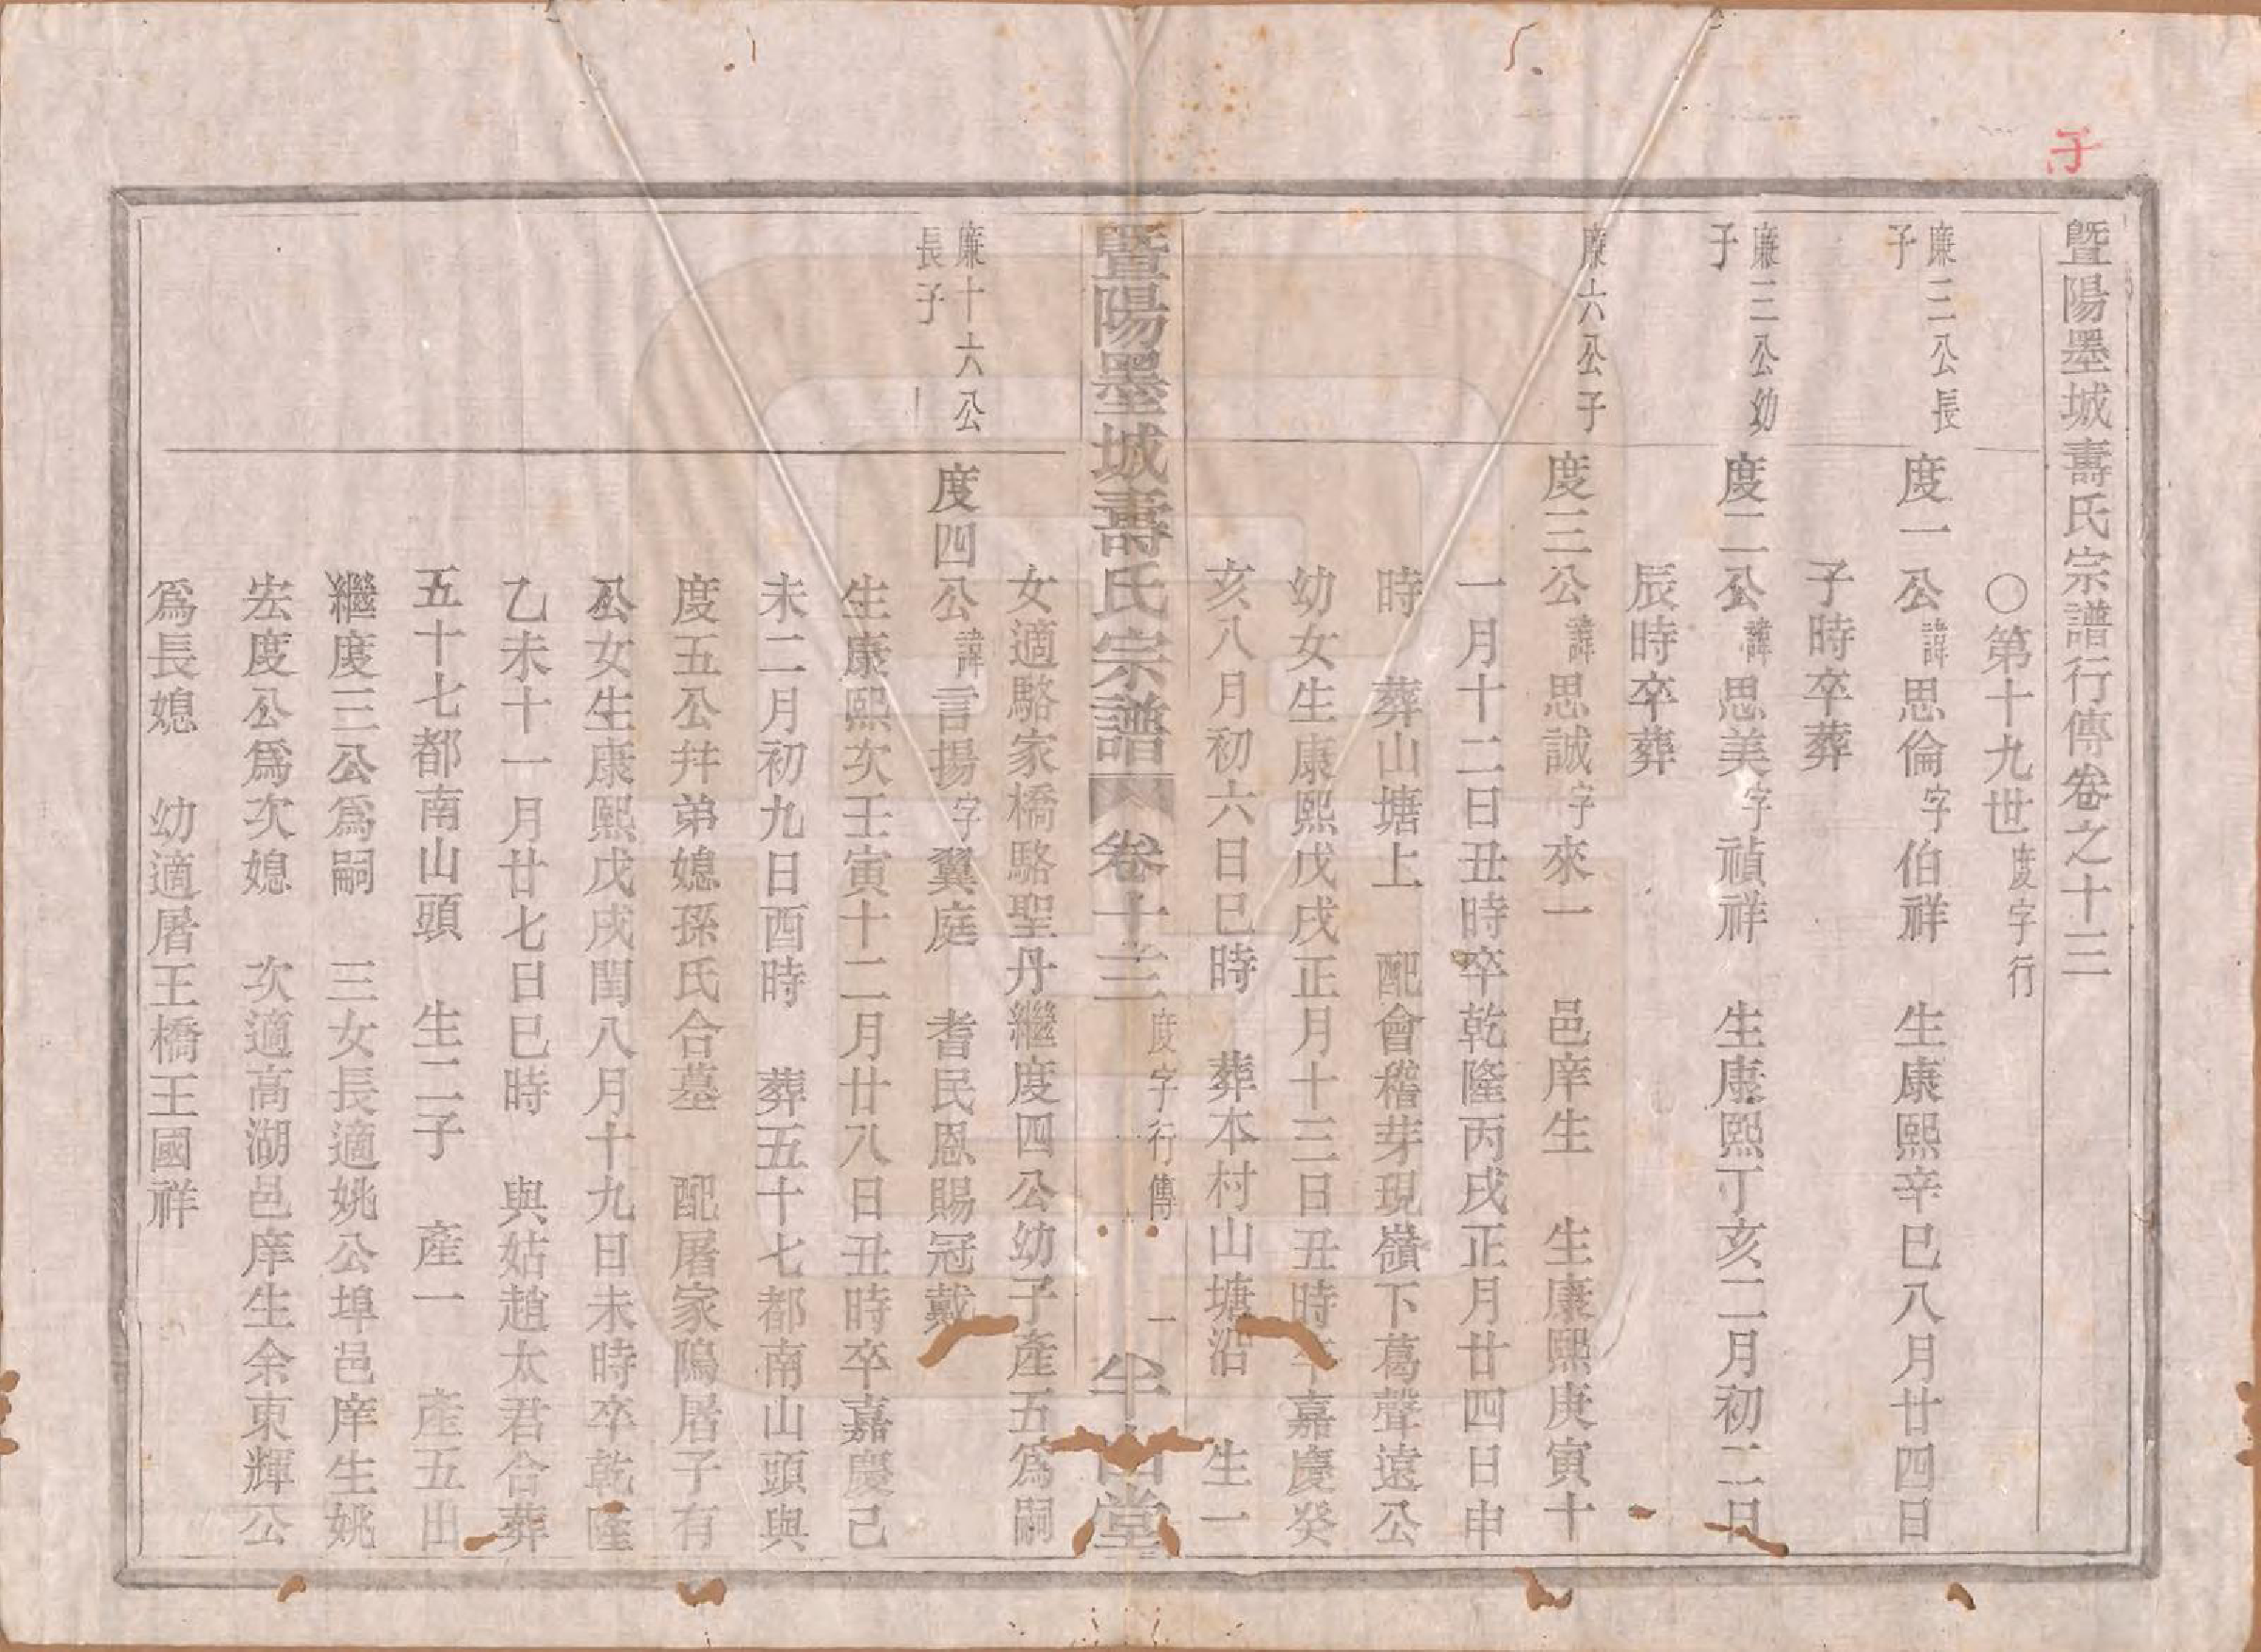 子
暨陽墨城壽氏宗譜行傳卷之十三
○第十九世度字行
廉三公長子
度一公諱思倫字伯祥　生康熙辛巳八月廿四日
子時卒葬
廉三公幼子
度二公諱思美字禎祥　生康熙丁亥二月初二日
辰時卒葬
廉六公子
度三公諱思誠字來一　邑庠生　生康熙庚寅十
一月十二日丑時卒乾隆丙戌正月廿四日申
時　葬山塘上　配會稽芽現嶺下葛聲遠公
幼女生康熙戊戌正月十三日丑時卒嘉慶癸
亥八月初六日巳時　葬本村山塘沿　生一
暨陽墨城壽氏宗譜　卷十三　度字行傳　一　半山堂
女適駱家橋駱聖丹繼度四公幼子產五為嗣
廉十六公長子
度四公諱言揚字翼庭　耆民恩賜冠戴
生康熙次壬寅十二月廿八日丑時卒嘉慶己
未二月初九日酉時　葬五十七都南山頭與
度五公幷弟媳孫氏合墓　配屠家隖屠子有
公女生康熙戊戌閏八月十九日未時卒乾隆
乙未十一月廿七日巳時　與姑趙太君合葬
五十七都南山頭　生二子　產一　產五出
繼度三公爲嗣　三女長適姚公埠邑庠生姚
宏度公爲次媳　次適高湖邑庠生余東輝公
爲長媳　幼適屠王橋王國祥